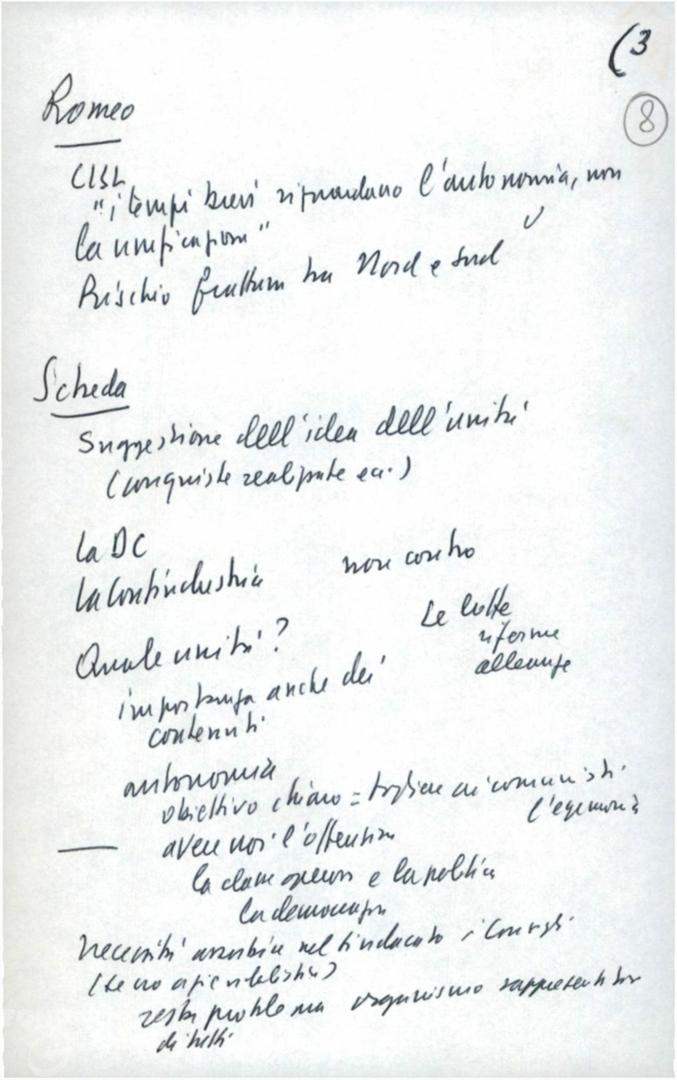 (3
8
Romeo
CISL
"i tempi brevi riguardano l'autonomia, non
la unificazione"
Rischio frattura tra Nord e Sud
Scheda
Suggestione dell'idea dell'unità
(conquiste realizzate ecc.)
la DC
la Confindustria non contro
Quale unità?
Le lotte
riforme
alleanze
importanza anche dei
contenuti
autonomia
obiettivo chiaro = togliere ai comunisti
l'egemonia
avere noi l'offensiva
la classe operaia e la politica
la democrazia
necessità assorbire nel sindacato i Consigli
(se no
resta problema organismo
di tutti